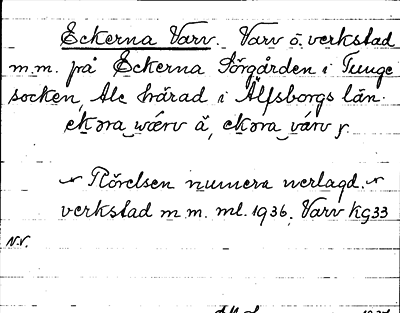 Eckerna Varv. Varv o. verkstad
m.m. på Eckerna Sörgården i Tunge
socken, Ale härad i Älfsborgs län.
ekəra wärv ä, ekəra várv y.
Rörelsen numera nerlagd.
verkstad m.m. ml. 1936. Varv Kg33
N.V.